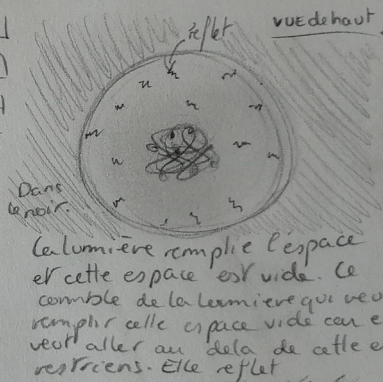 reflet
VUE de haut
Dans
le noir.
La lumière remplie l'espace
et cette espace est vide. Ce
comble de la lumiere qui veu
remplir cette espace vide car e
veut aller au dela de cette e
restriens. Elle reflet